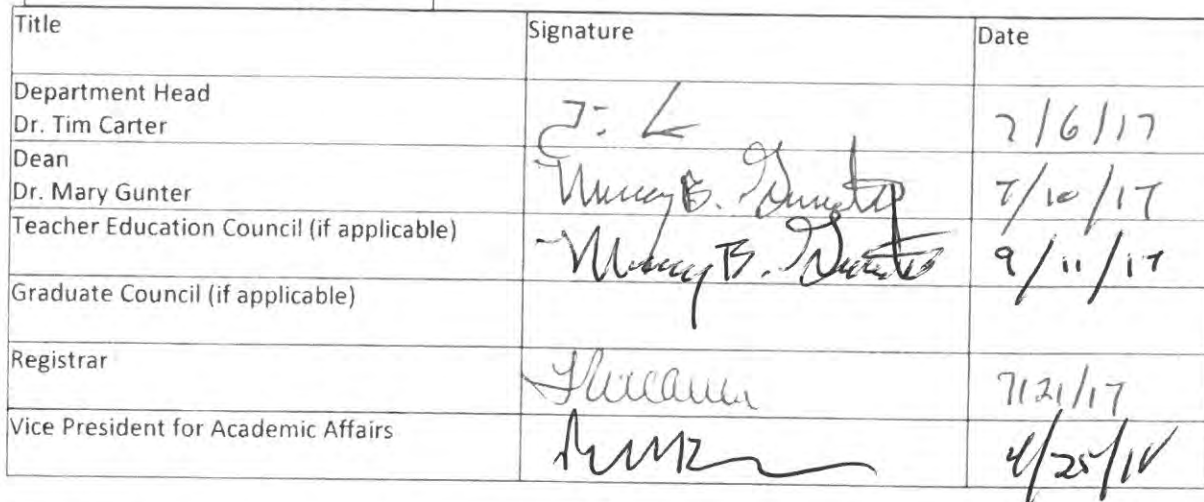 Title Signature Date
Department Head
Dr. Tim Carter 7/6/17
Dean
Dr. Mary Gunter Mary B. Gunter 7/10/17
Teacher Education Council (if applicable) Mary B. Gunter 9/11/17
Graduate Council (if applicable)
Registrar 7/21/17
Vice President for Academic Affairs 4/25/18